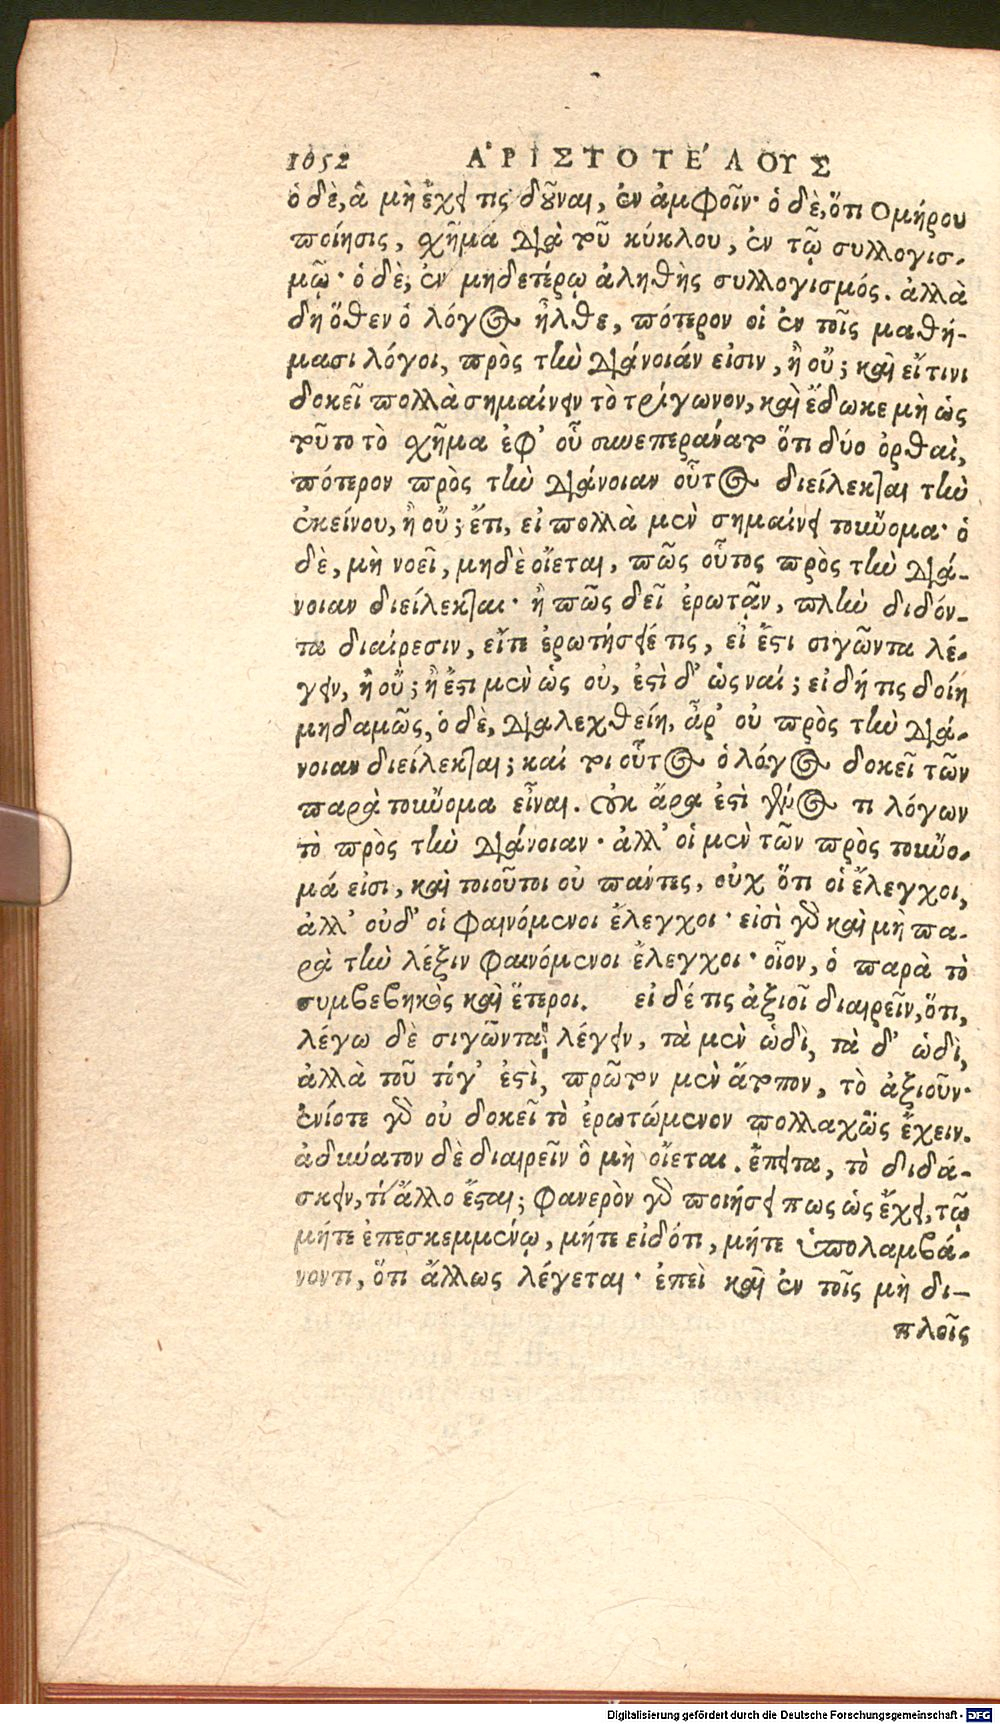 1052 ἈΡΙΣΤΟΤΈΛΟΥΣ
ὁ δὲ, ἃ μὴ ἔχει τις δοῦναι, ἐν ἀμφοῖν· ὁ δὲ, ὅτι Ομήρου
ποίησις, σχῆμα διὰ τοῦ κύκλου, ἐν τῷ συλλογισ-
μῷ· ὁ δὲ, ἐν μηδετέρῳ ἀληθὴς συλλογισμός. ἀλλὰ
δὴ ὅθεν ὁ λόγος ἦλθε, πότερον οἱ ἐν τοῖς μαθή-
μασι λόγοι, πρὸς τὴν διάνοιάν εἰσιν, ἢ οὔ; καὶ εἴ τινι
δοκεῖ πολλὰ σημαίνειν τὸ τρίγωνον, καὶ ἔδωκε μὴ ὡς
τοῦτο τὸ σχῆμα ἐφ' οὗ συνεπεράνατο ὅτι δύο ὀρθαὶ,
πότερον πρὸς τὴν διάνοιαν οὗτος διείλεκται τὴν
ἐκείνου, ἢ οὔ; ἔτι, εἰ πολλὰ μὲν σημαίνει τοὔνομα· ὁ
δὲ, μὴ νοεῖ, μηδὲ οἴεται, πῶς οὗτος πρὸς τὴν διά-
νοιαν διείλεκται· ἢ πῶς δεῖ ἐρωτᾷν, πλὴν διδόν-
τα διαίρεσιν, εἴτε ἐρωτήσειέ τις, εἰ ἔστι σιγῶντα λέ-
γειν, ἢ οὔ; ἢ ἔστι μὲν ὡς οὐ, ἐστὶ δ' ὡς ναί; εἰ δή τις δοίη
μηδαμῶς, ὁ δὲ, διαλεχθείη, ἆρ' οὐ πρὸς τὴν διά-
νοιαν διείλεκται; καί τοι οὗτος ὁ λόγος δοκεῖ τῶν
παρὰ τοὔνομα εἶναι. Οὐκ ἄρα ἐστὶ γένος τι λόγων
τὸ πρὸς τὴν διάνοιαν· ἀλλ' οἱ μὲν τῶν πρὸς τοὔνο-
μά εἰσι, καὶ τοιοῦτοι οὐ πάντες, οὐχ ὅτι οἱ ἔλεγχοι,
ἀλλ' οὐδ' οἱ φαινόμενοι ἔλεγχοι· εἰσὶ γὰρ καὶ μὴ πα-
ρὰ τὴν λέξιν φαινόμενοι ἔλεγχοι· οἷον, ὁ παρὰ τὸ
συμβεβηκὸς καὶ ἕτεροι. εἰ δέ τις ἀξιοῖ διαιρεῖν, ὅτι,
λέγω δὲ σιγῶντα λέγειν, τὰ μὲν ὡδὶ, τὰ δ' ὡδὶ,
ἀλλὰ τοῦ τό γ' ἐστὶ, πρῶτον μὲν ἄτοπον, τὸ ἀξιοῦν·
ἐνίοτε γὰρ οὐ δοκεῖ τὸ ἐρωτώμενον πολλαχῶς ἔχειν.
ἀδύνατον δὲ διαιρεῖν ὃ μὴ οἴεται. ἔπειτα, τὸ διδά-
σκειν, τί ἄλλο ἔσται; φανερὸν γὰρ ποιήσει πως ὡς ἔχει, τῷ
μήτε ἐπεσκεμμένῳ, μήτε εἰδότι, μήτε ὑπολαμβά-
νοντι, ὅτι ἄλλως λέγεται· ἐπεὶ καὶ ἐν τοῖς μὴ δι-
πλοῖς
Digitalisierung gefördert durch die Deutsche Forschungsgemeinschaft - DFG